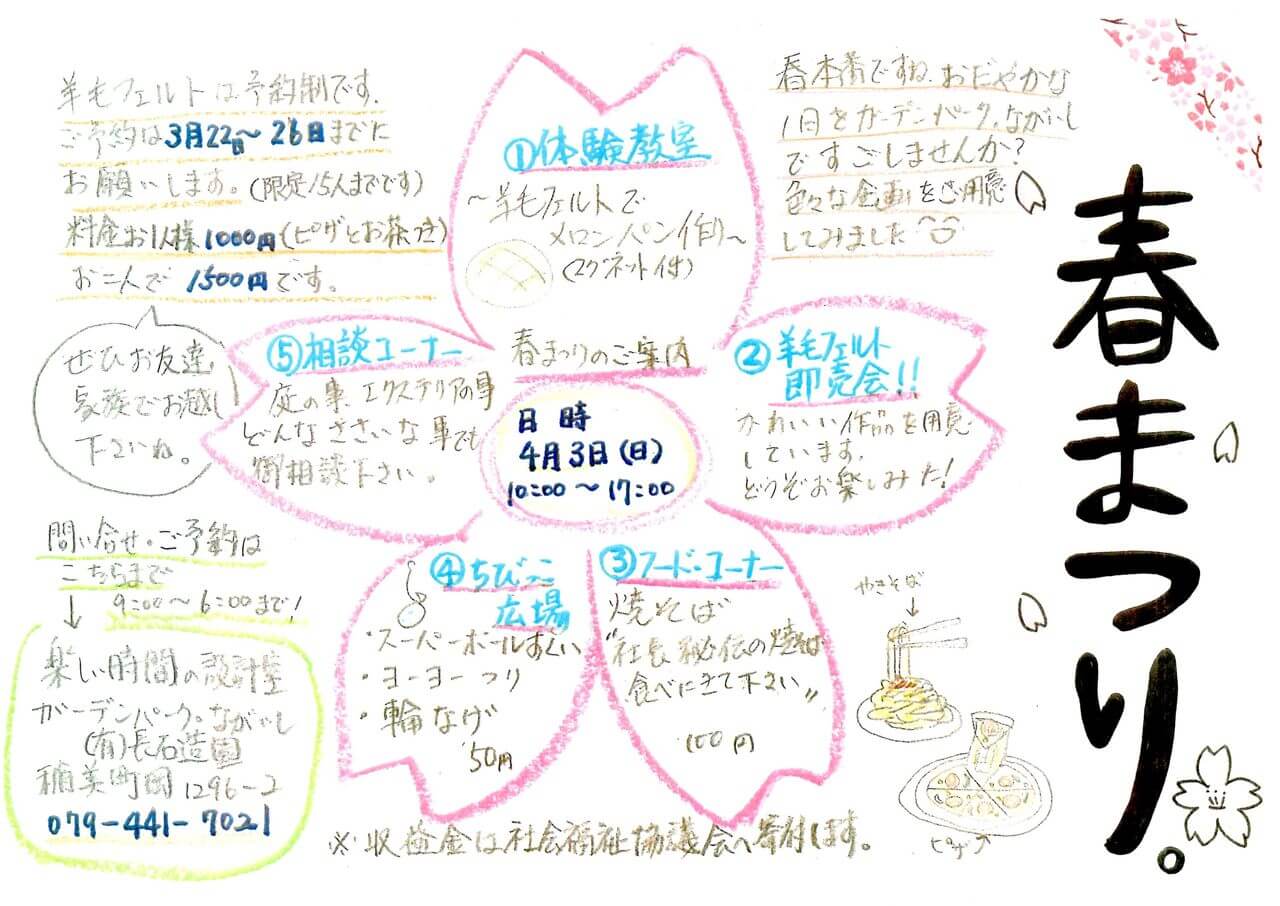 春まつり。
春本番ですね。おだやかな
1日をガーデンパーク。ながいし
ですごしませんか?
色々な企画をご用意
してみました
羊毛フェルトは予約制です。
ご予約は3月22日～26日までに
お願いします。(限定15人までです)
料金お1人様1000円(ピザとお茶つき)
お二人で1500円です。
ぜひお友達、
家族でお越し
下さいね。
春まつりのご案内
日時
4月3日(日)
10:00～17:00
①体験教室
～羊毛フェルトで
メロンパン作り～
(マグネット付)
②羊毛フェルト
即売会!!
かわいい作品を用意
しています。
どうぞお楽しみた!
③フード・コーナー
焼そば
"社長秘伝の焼そば
食べにきて下さい"
100円
やきそば
ピザ
④ちびっこ
広場
・スーパーボールすくい
・ヨーヨーつり
・輪なげ
50円
⑤相談コーナー
庭の事、エクステリアの事
どんなささいな事でも
御相談下さい。
問い合せ・ご予約は
こちらまで
9:00～6:00まで!
楽しい時間の設計室
ガーデンパーク。ながいし
(有)長石造園
稲美町岡1296-2
079-441-7021
※収益金は社会福祉協議会へ寄付します。